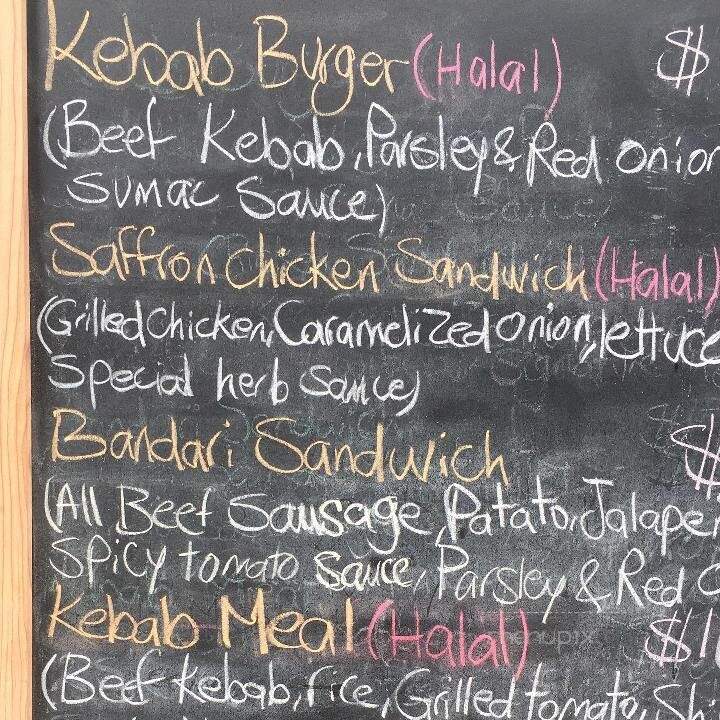 Kebab Burger (Halal) $
(Beef Kebab, Parsley & Red onion
Sumac Sauce)
Saffron Chicken Sandwich (Halal)
(Grilled Chicken, Caramelized onion, lettuce
Special herb Sauce)
Bandari Sandwich $
(All Beef Sausage, Patato, Jalape
Spicy tomato Sauce, Parsley & Red
Kebab Meal (Halal) $1
(Beef Kebab, rice, Grilled tomato, Shi